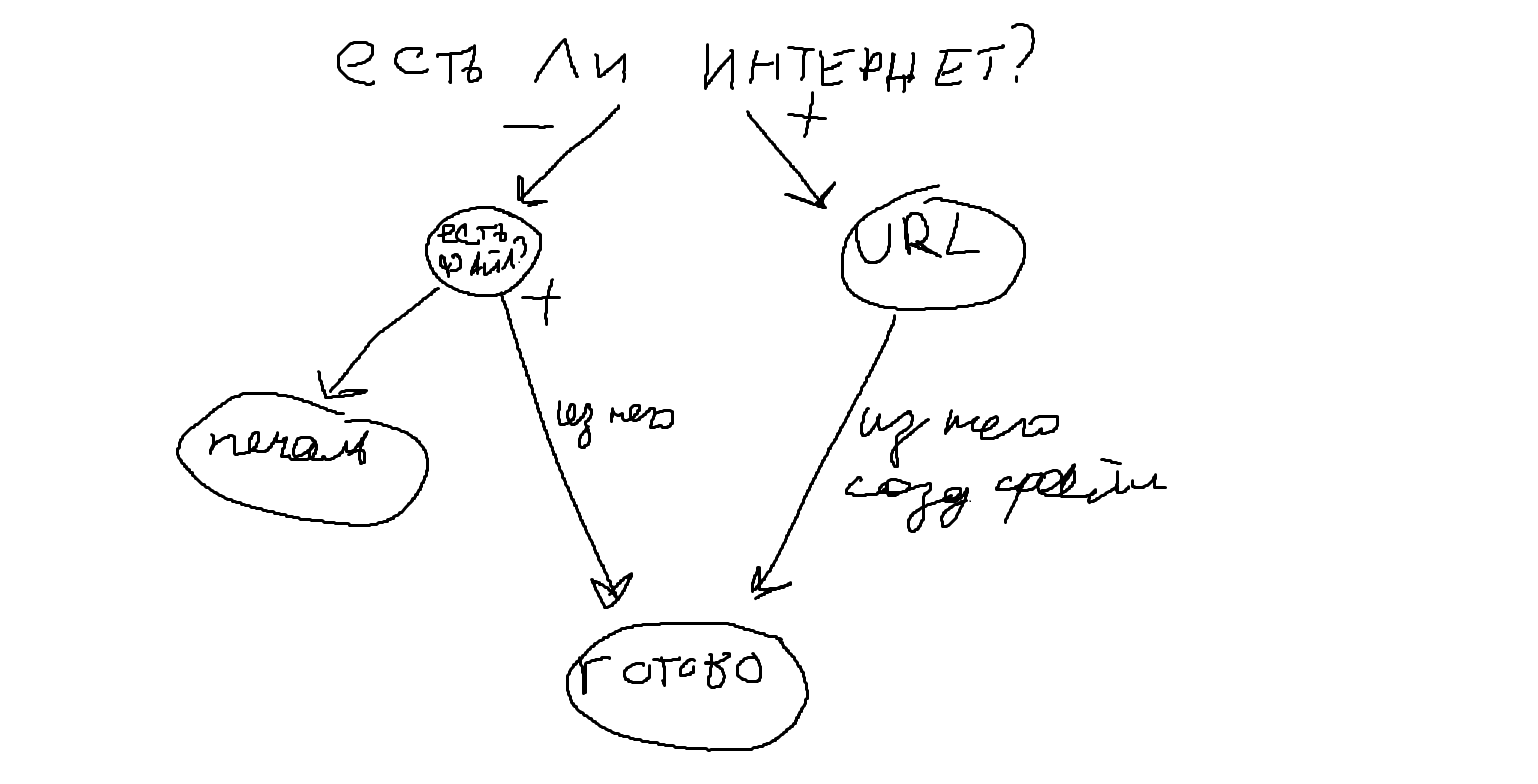 есть ли интернет?
− +
есть
файл?
URL
+
печаль
из него
из него
созд файл
готово